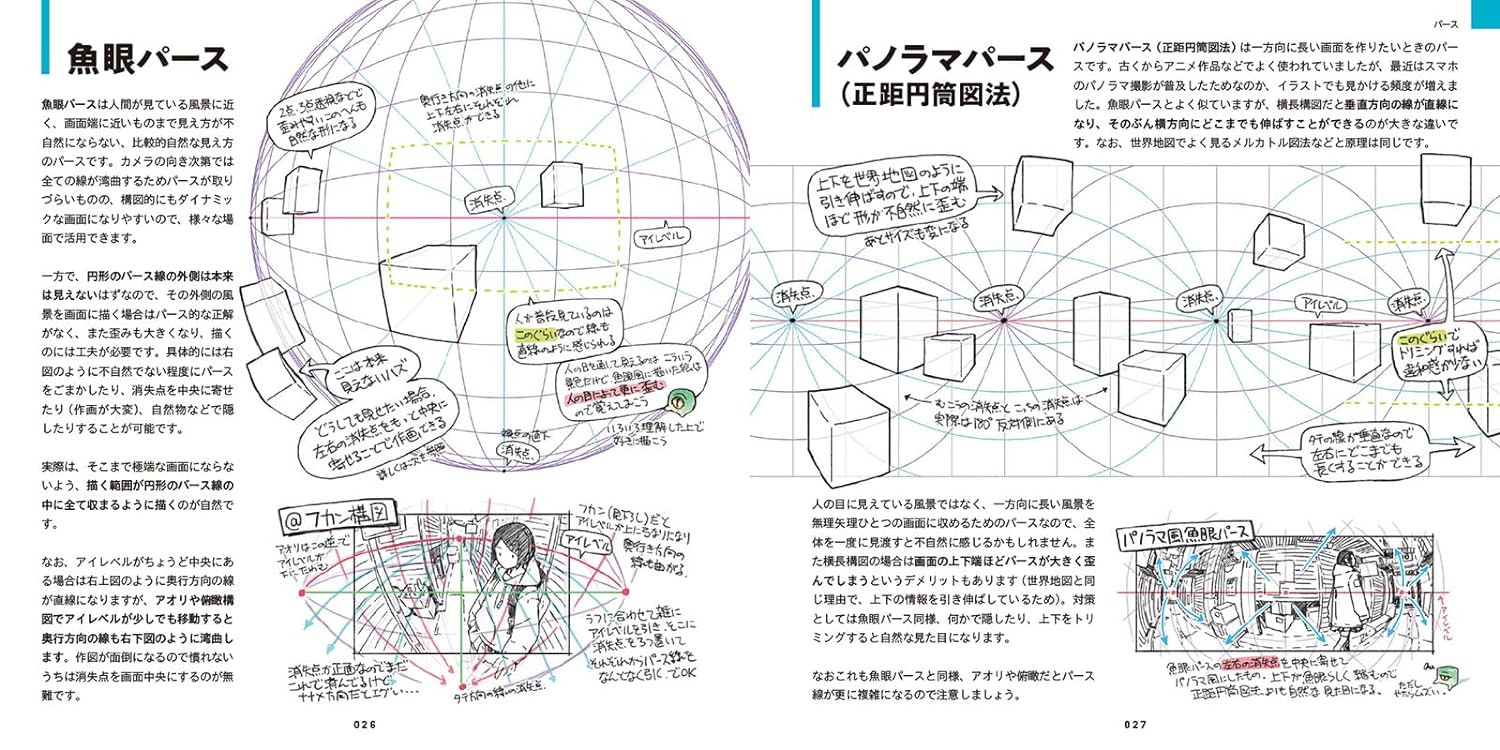 魚眼パース
魚眼パースは人間が見ている風景に近
く、画面端に近いものまで見え方が不
自然にならない、比較的自然な見え方
のパースです。カメラの向き次第では
全ての線が湾曲するためパースが取り
づらいものの、構図的にもダイナミッ
クな画面になりやすいので、様々な場
面で活用できます。
一方で、円形のパース線の外側は本来
は見えないはずなので、その外側の風
景を画面に描く場合はパース的な正解
がなく、また歪みも大きくなり、描く
のには工夫が必要です。具体的には右
図のように不自然でない程度にパース
をごまかしたり、消失点を中央に寄せ
たり（作画が大変）、自然物などで隠
したりすることが可能です。
実際は、そこまで極端な画面にならな
いよう、描く範囲が円形のパース線の
中に全て収まるように描くのが自然で
す。
なお、アイレベルがちょうど中央にあ
る場合は右上図のように奥行方向の線
が直線になりますが、アオリや俯瞰構
図でアイレベルが少しでも移動すると
奥行方向の線も右下図のように湾曲し
ます。作図が面倒になるので慣れない
うちは消失点を画面中央にするのが無
難です。
2点、3点透視などで
歪みやすいこのへんも
自然な形になる
奥行き方向の消失点の他に
上下左右にそれぞれ
消失点ができる
消失点
アイレベル
人が普段見ているのは
このぐらいなので線も
直線のように感じられる
人の目を通して見えるのはこういう
景色だけど、魚眼風に描いた絵は
人の目によって更に歪む
ので覚えておこう
いろいろ理解した上で
好きに描こう
ここは本来
見えないハズ
どうしても見せたい場合、
左右の消失点をもっと中央に
寄せることで作画できる
詳しくは次を参照
視点の真下
消失点
@フカン構図
アオリはこの逆で
アイレベルが
下にたわむ
フカン(見下ろし)だと
アイレベルが上に弓なりになり
奥行き方向の
線も曲がる。
アイレベル
うフに合わせて雑に
アイレベルを引き、そこに
消失点を3つ置いて
それぞれからパース線を
なんとなく引く、でOK
消失点が正面なのでまだ
これで済んでるけど
ナナメ方向だとエグい…
タテ方向の線の消失点
026
パース
パノラマパース
（正距円筒図法）
パノラマパース（正距円筒図法）は一方向に長い画面を作りたいときのパー
スです。古くからアニメ作品などでよく使われていましたが、最近はスマホ
のパノラマ撮影が普及したためなのか、イラストでも見かける頻度が増えま
した。魚眼パースとよく似ていますが、横長構図だと垂直方向の線が直線に
なり、そのぶん横方向にどこまでも伸ばすことができるのが大きな違いで
す。なお、世界地図でよく見るメルカトル図法などと原理は同じです。
上下を世界地図のように
引き伸ばすので、上下の端
ほど形が不自然に歪む
あとサイズも変になる
消失点
消失点
消失点
アイレベル
消失点
このぐらいで
トリミングすれば
違和感がない
むこうの消失点とこっちの消失点は
実際は180°反対側にある
タテの線が垂直なので
左右にどこまでも
長くすることができる
人の目に見えている風景ではなく、一方向に長い風景を
無理矢理ひとつの画面に収めるためのパースなので、全
体を一度に見渡すと不自然に感じるかもしれません。ま
た横長構図の場合は画面の上下端ほどパースが大きく歪
んでしまうというデメリットもあります（世界地図と同
じ理由で、上下の情報を引き伸ばしているため）。対策
としては魚眼パース同様、何かで隠したり、上下をトリ
ミングすると自然な見た目になります。
なおこれも魚眼パースと同様、アオリや俯瞰だとパース
線が更に複雑になるので注意しましょう。
パノラマ風魚眼パース
アイレベル
魚眼パースの左右の消失点を中央に寄せて
パノラマ風にしたもの。上下が魚眼らしく縮むので
正距円筒図法よりも自然な見た目になる。
ただし
やたらムズい。
027